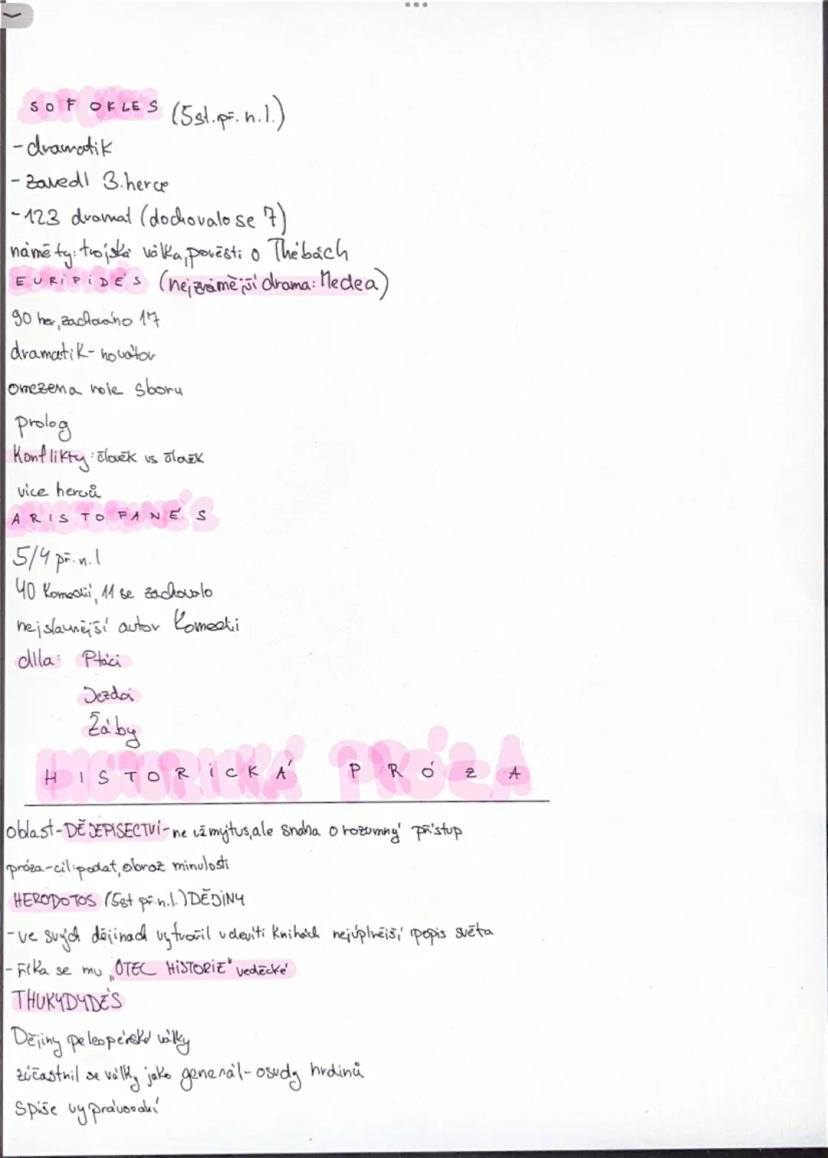 SOFOKLES (5st.př.n.l.)
- dramatik
- zavedl 3.herce
- 123 dramat (dochovalo se 7)
náměty: trojská válka, pověsti o Thébách
EURIPIDÉS (nejznámější drama: Medea)
90 her, zachováno 17
dramatik - novátor
omezena role sboru
prolog
Konflikty: člověk vs člověk
více herců
ARISTOFANÉS
5/4 př.n.l
40 Komedií, 11 se zachovalo
nejslavnější autor Komedií
díla: Ptáci
Jezdci
Žáby
HISTORICKÁ PRÓZA
oblast-DĚJEPISECTVÍ-ne už mýtus, ale snaha o rozumný přístup
próza-cíl: podat, obraz minulosti
HERODOTOS (5st př.n.l.) DĚJINY
-ve svých dějinach vytvořil v devíti knihách nejúplnější popis světa
- říka se mu „OTEC HISTORIE" vědecké
THUKYDYDÉS
Dějiny války
zúčastnil se války jako generál - osudy hrdinů
spíše vypravování